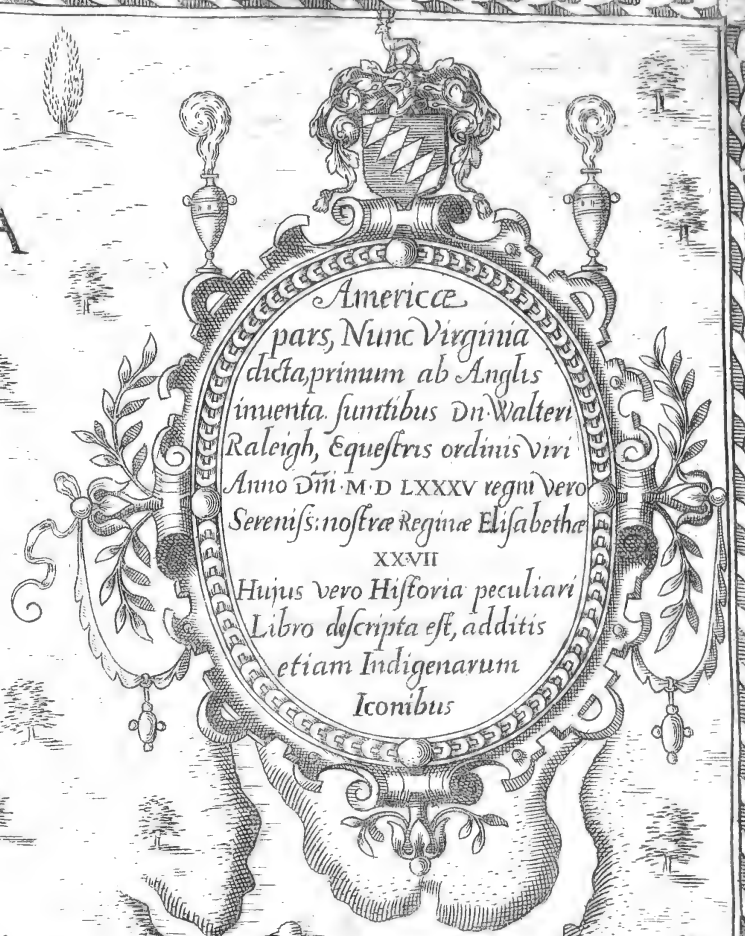 A
Americæ
pars, Nunc Virginia
dicta, primum ab Anglis
inuenta. ſumtibus Dn. Walteri
Raleigh, Equeſtris ordinis Viri
Anno Dm̃i. M.D LXXXV regni Vero
Sereniſs: noſtræ Reginæ Eliſabethæ
XXVII
Hujus vero Hiſtoria peculiari
Libro deſcripta eſt, additis
etiam Indigenarum
Iconibus